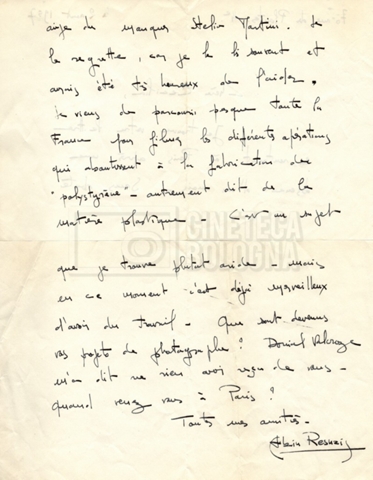 ainge du manque Stelio Martini. Je
le regrette, car je le lis souvent et
aurais été très heureux de l'aider.
Je viens de parcourir presque toute la
France pour filmer les différentes opérations
qui aboutissent à la fabrication du
"polystyrène" - autrement dit de la
matière plastique - C'est un sujet
CINETECA
BOLOGNA
que je trouve plutôt aride - mais
en ce moment c'est déjà merveilleux
d'avoir du travail - Que sont devenus
vos projets de photographe? Doniol Valcroze
m'a dit ne rien avoir reçu de vous -
quand venez vous à Paris?
Toutes mes amitiés -
Alain Resnais